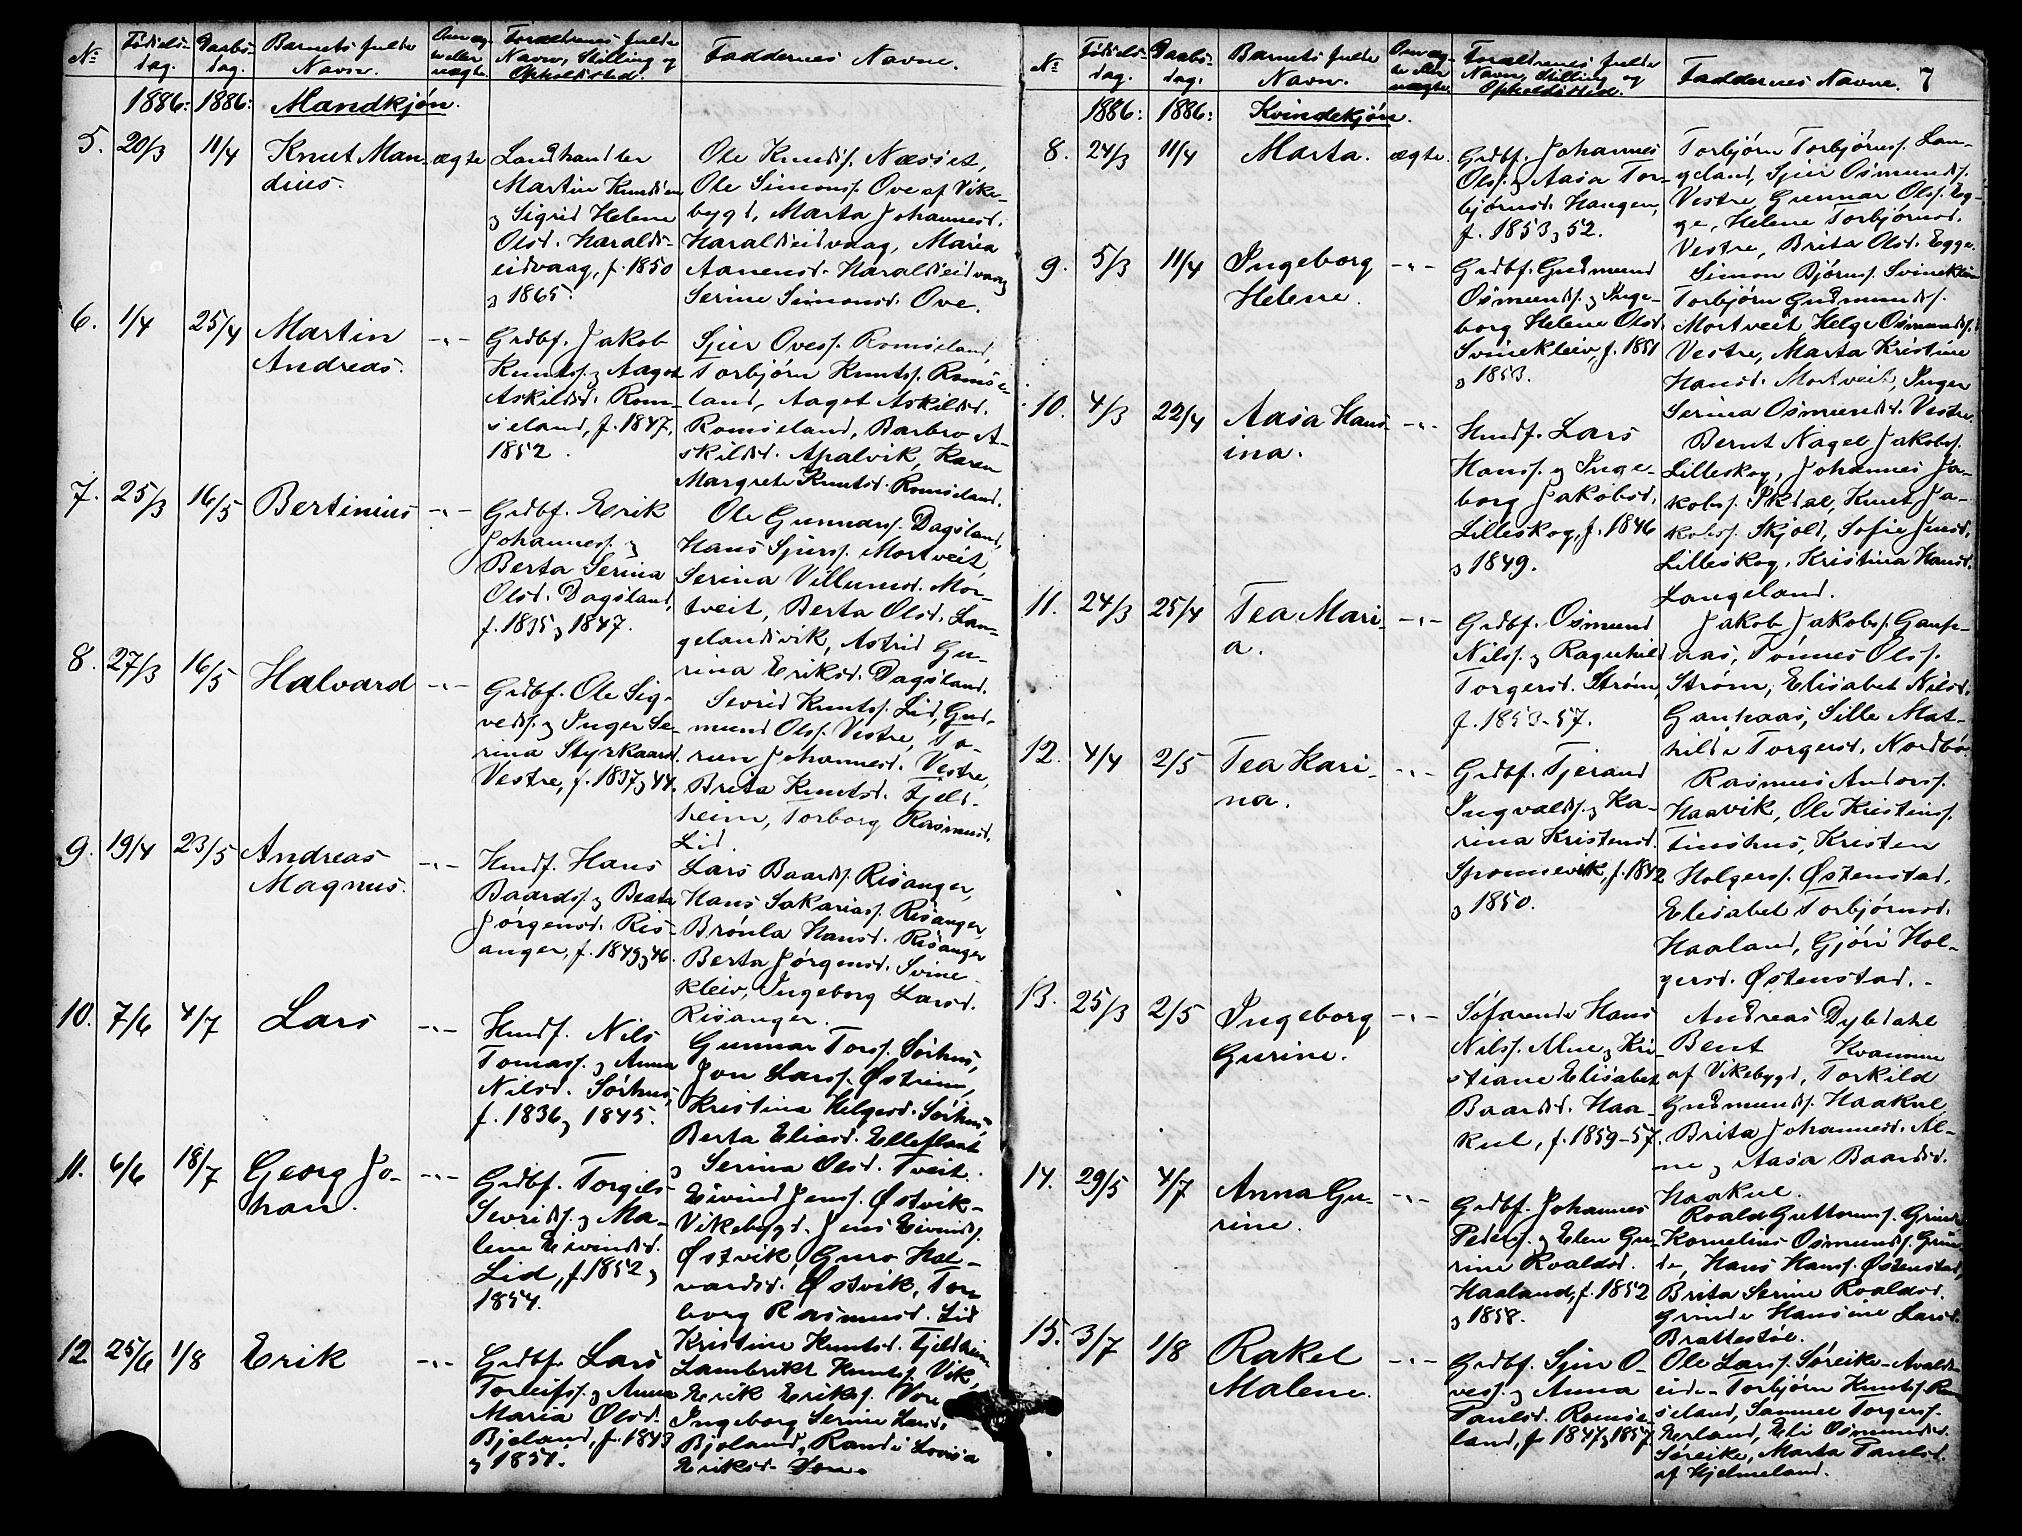 No Fødsels- Daabs- Barnets fulde Om æg- Forældrenes fulde Faddernes Navne.
dag. dag. Navn. te eller Navn, Stilling og
uægte Opholdssted.
1886: 1886: Mandkjøn.
5. 20/3 11/4 Knut Man- ægte
dius.
Landhandler
Martin Knudsen
og Sigrid Helene
Olsd. Haralds-
eidvaag, f. 1850
og 1865.
Ole Knudss. Næsset,
Ole Simonss. Ove af Vike-
bygd, Marta Johannesd.
Haraldseidvaag, Maria
Aanensd. Haraldseidvaag
Serine Simonsd. Ove.
6. 1/4 25/4 Martin -"-
Andreas.
Grdbf. Jakob
Knuts. og Aagot
Askildsd. Rom-
seland, f. 1847,
1852.
Sjur Ovess. Romseland,
Torbjørn Knutss. Romse-
land, Aagot Askildsd.
Romseland, Barbro A-
skildsd. Apalvik, Karen
Margrete Knutsd. Romseland.
7. 25/3 16/5 Bertinius -"-
Grdbf. Erik
Johanness. og
Berta Serina
Olsd. Dagsland,
f. 1835 og 1847.
Ole Gunnarss. Dagsland,
Hans Sjurss. Mortveit,
Serina Villumsd. Mor-
tveit, Berta Olsd. Lan-
gelandsvik, Astrid Gu-
rina Eriksd. Dagsland.
8. 27/3 16/5 Halvard -"-
Grdbf. Ole Sig-
vedss. og Inger Se-
rina Styrkaarsd.
Vestre, f. 1837 og 44.
Sevrid Knutss. Lid, Gud-
mund Olss. Vestre, To-
run Johannesd. Vestre,
Brita Knutsd. Fjeld-
heim, Torborg Rasmusd.
Lid.
9. 19/4 23/5 Andreas -"-
Magnus.
Husmf. Hans
Baardss. og Beata
Jørgensd. Ris-
anger, f. 1849 og 46.
Lars Baardss. Risanger,
Hans Sakariass. Risanger,
Brønla Hansd. Risanger
Berta Jørgensd. Svine-
kleiv, Ingeborg Larsd.
Risanger.
10. 7/6 4/7 Lars -"-
Husmf. Nils
Tomass. og Anna
Nilsd. Sørhus,
f. 1836 og 1845.
Gunnar Torss. Sørhus,
Jon Larss. Østreim,
Kristina Helgesd. Sørhus,
Berta Eliasd. Elleflaat
og Serina Olsd. Tveit.
11. 6/6 18/7 Georg Jo- -"-
han.
Grdbf. Torgils
Sevrids. og Ma-
lene Eivindsd.
Lid, f. 1852 og
1854.
Eivind Jenss. Østvik-
Vikebygd. Jens Eivindss.
Østvik, Guro Hal-
vardsd. Østvik, Tor-
borg Rasmusd. Lid
12. 25/6 1/8 Erik -"-
Grdbf. Lars
Torleifss. og Anna
Maria Olsd.
Bjoland, f. 1843
og 1851.
Kristine Knutsd. Fjeldheim
Lambrikt Knutss. Vik,
Erik Erikss.
Ingeborg Serine Larsd.
Bjoland, Randi Lovisa
Eriksd.
No Fødsels- Daabs- Barnets fulde Om æg- Forældrenes fulde Faddernes Navne. 7
dag. dag. Navn. te eller Navn, Stilling og
uægte Opholdssted.
1886: 1886: Kvindekjøn.
8. 24/3 11/4 Marta. ægte.
Grdbf. Johannes
Olss. og Aasa Tor-
bjørnsd. Haugen,
f. 1853 og 52.
Torbjørn Torbjørnss. Lan-
geland, Sjur Osmundss.
Vestre, Gunnar Olss. Eg-
ge, Helene Torbjørnsd.
Vestre, Brita Olsd. Egge.
9. 5/3 11/4 Ingeborg -"-
Helene.
Grdbf. Gudmund
Osmunds. og Inge-
borg Helene Olsd.
Svinekleiv, f. 1851
og 1853.
Simon Bjørnss. Svinekleiv
Torbjørn Gudmundss.
Mortveit, Helge Osmundss.
Vestre, Marta Kristine
Hansd. Mortveit, Inger
Serina Osmundsd. Vestre.
10. 4/3 22/4 Aasa Hans- -"-
ina.
Husmf. Lars
Hanss. og Inge-
borg Jakobsd.
Lilleskog, f. 1846
og 1849.
Bernt Nagel Jakobss.
Lilleskog, Johannes Ja-
kobss. Skjol, Knut Ja-
kobss. Skjold, Sofie Jensd.
Lilleskog, Kristina Hansd.
Langeland.
11. 24/3 25/4 Tea Mari- -"-
a.
Grdbf. Osmund
Nilss. og Ragnhild
Torgersd. Strøm,
f. 1853-57.
Jakob Jakobss. Gaup-
aas, Tønnes Olss.
Strøm, Elisabet Nilsd.
Gaupaas, Sille Mat-
hilde Torgersd. Nordbø.
12. 4/4 2/5 Tea Kari- -"-
na.
Grdbf. Tjerand
Ingvaldss. og Ka-
rina Kristensd.
Sponnevik, f. 1842
og 1850.
Rasmus Anderss.
Haavik, Ole Kristenss.
Tinshus, Kristen
Holgerss. Østenstad,
Elisabet Torbjørnsd.
Haaland, Gjøri Hol-
gersd. Østenstad.
13. 25/3 2/5 Ingeborg -"-
Gurine.
Søfarende Hans
Nilss. Alne og Kri-
stiane Elisabet
Baardsd. Haa-
kul, f. 1859-57.
Andreas Dybdahl
Bent Kvamme
af Vikebygd, Torkild
Gudmundss. Haakul,
Brita Johannesd. Al-
ne og Aasa Baardsd.
Haakul.
14. 29/5 4/7 Anna Gu- -"-
rine.
Grdbf. Johannes
Peders. og Elen Gu-
rine Roaldsd.
Haaland, f. 1852
og 1858.
Roald Guttormss. Grinde
Kornelius Osmundss. Grin-
de, Hans Hanss. Østenstad,
Brita Serine Roaldsd.
Grinde Hansine Larsd.
Brattestøl.
15. 3/7 1/8 Rakel -"-
Malene.
Grdbf. Sjur O-
vess. og Anna
Paulsd. Romse-
land, f. 1847 og 1857.
Ole Larss. Søreike-Avalds-
eide. Torbjørn Knutss. Rom-
seland, Samuel Torgerss.
Erland, Eli Osmundsd.
Søreike, Marta Paulsd.
af Hjelmeland.